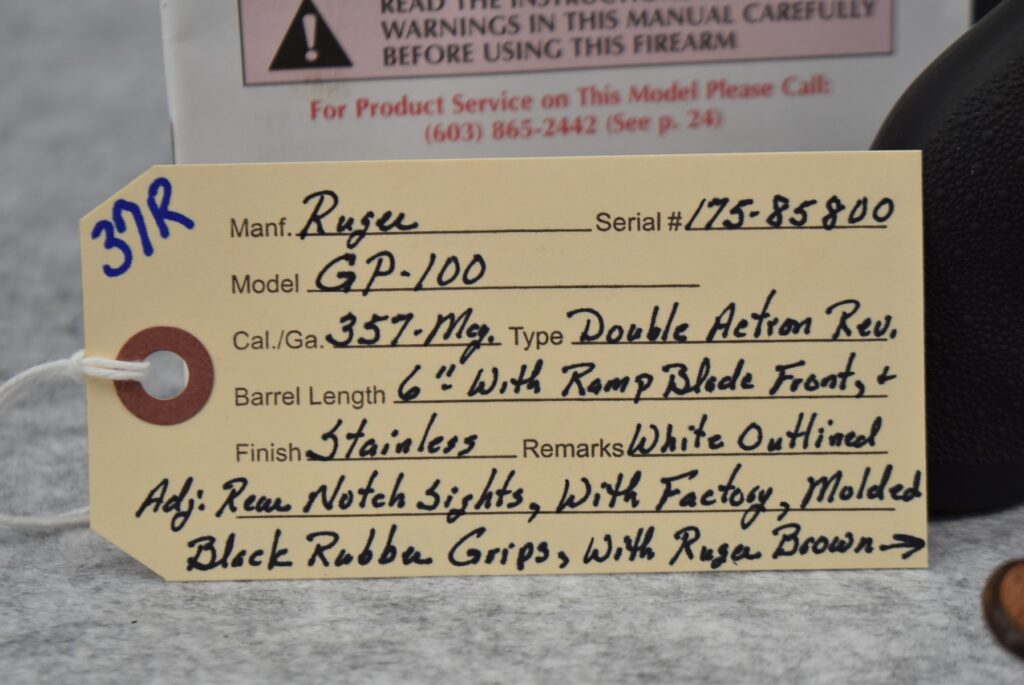 READ THE INSTRUCTIONS
WARNINGS IN THIS MANUAL CAREFULLY
BEFORE USING THIS FIREARM
For Product Service on This Model Please Call:
(603) 865-2442 (See p. 24)
37R
Manf. Ruger Serial # 175-85800
Model GP-100
Cal./Ga. 357-Mag. Type Double Action Rev.
Barrel Length 6" With Ramp Blade Front, +
Finish Stainless Remarks White Outlined
Adj: Rear Notch Sights, With Factory, Molded
Black Rubber Grips, With Ruger Brown →